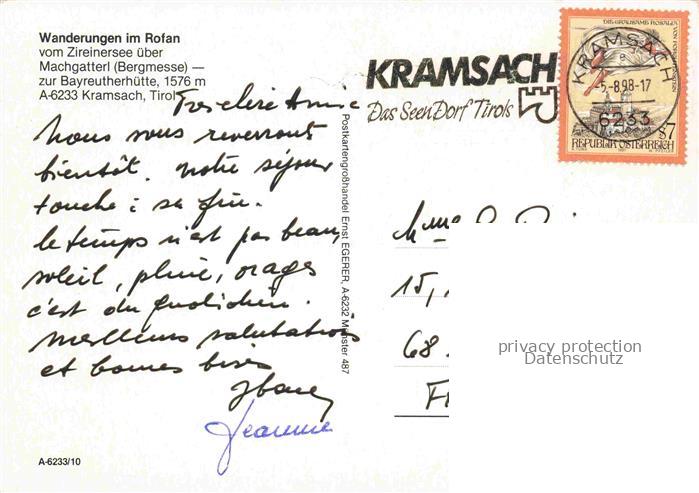 Wanderungen im Rofan
vom Zireinersee über
Machgatterl (Bergmesse) —
zur Bayreutherhütte, 1576 m
A-6233 Kramsach, Tirol
Très chère Annie
Nous vous reverrons
bientôt. Notre séjour
touche à sa fin.
le temps n'est pas beau,
soleil, pluie, orages
c'est du quotidien.
meilleures salutations
et bonnes bises
Jeannie
A-6233/10
Postkartengroßhandel Ernst EGERER, A-6232 Münster 487
KRAMSACH
Das Seen Dorf Tirols
DIE GRAUSAME ROSALIA VON FORCHTENSTEIN
KRAMSACH
-5.-8.98-17
6233
S7
REPUBLIK ÖSTERREICH
Mme
15,
68
F
privacy protection
Datenschutz